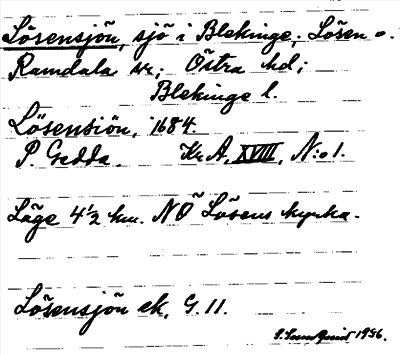 Lösensjön, sjö i Blekinge; Lösen o.
Ramdala sr; Östra hd;
Blekinge l.
Lösensiön, 1684.
P. Gedda. Kr. A, XVIII, N:o 1.
Läge 4½ km. NÖ Lösens kyrka.
Lösensjön ek. G. 11.
1956.